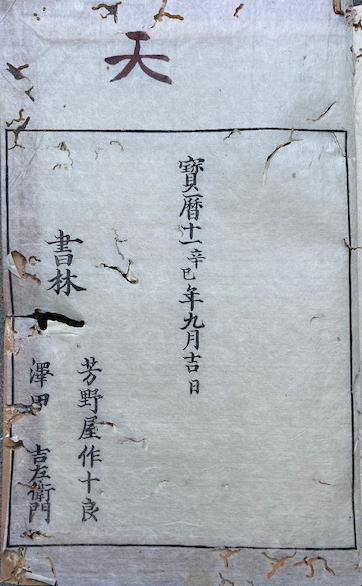 天
寶暦十一辛巳年九月吉日
書林
芳野屋作十良
澤田 吉左衛門